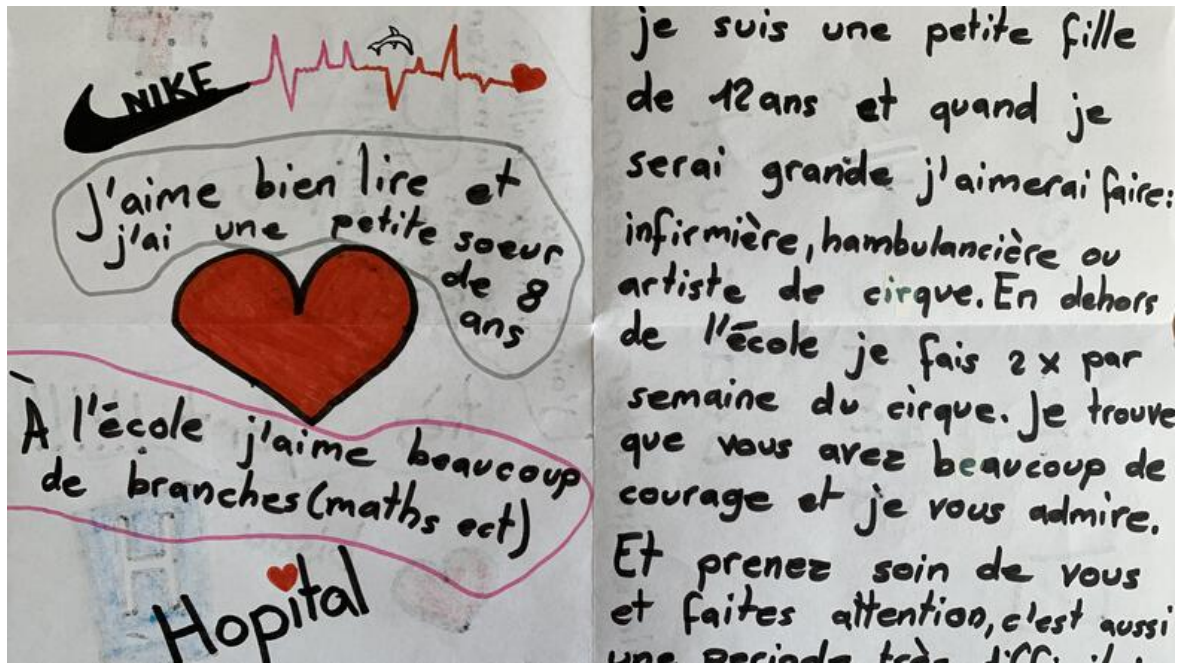 NIKE
J'aime bien lire et
j'ai une petite soeur
de 8
ans
À l'école j'aime beaucoup
de branches (maths ect)
Hopital
je suis une petite fille
de 12 ans et quand je
serai grande j'aimerai faire:
infirmière, hambulancière ou
artiste de cirque. En dehors
de l'école je fais 2 x par
semaine du cirque. Je trouve
que vous avez beaucoup de
courage et je vous admire.
Et prenez soin de vous
et faites attention, c'est aussi
une periode très